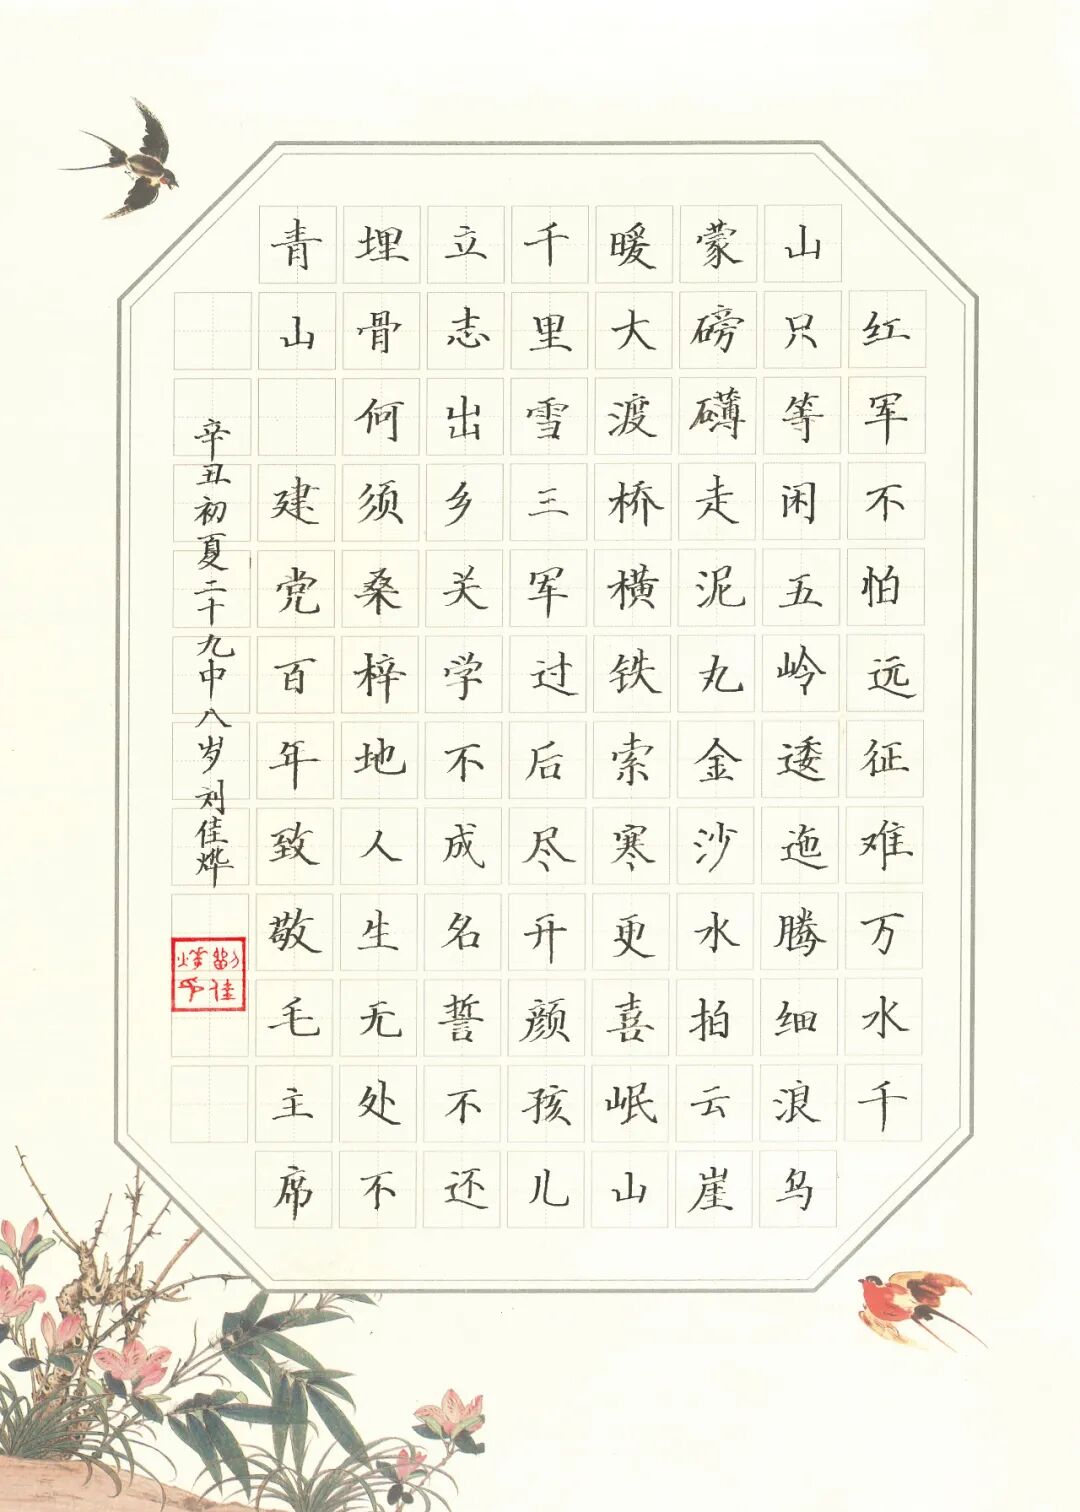 红军不怕远征难万水千
山只等闲五岭逶迤腾细浪乌
蒙磅礴走泥丸金沙水拍云崖
暖大渡桥横铁索寒更喜岷山
千里雪三军过后尽开颜孩儿
立志出乡关学不成名誓不还
埋骨何须桑梓地人生无处不
青山 建党百年致敬毛主席
辛丑初夏二十九中八岁刘佳烨
刘佳
烨印